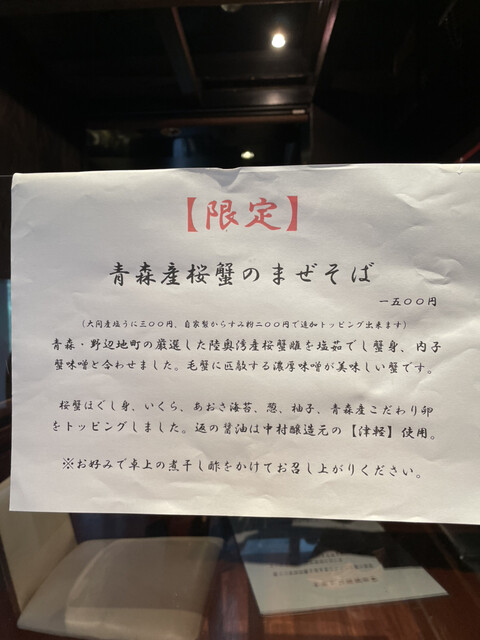 【限定】
青森産桜蟹のまぜそば
一五〇〇円
（大間産塩うに三〇〇円、自家製からすみ粉二〇〇円で追加トッピング出来ます）
青森・野辺地町の厳選した陸奥湾産桜蟹雌を塩茹でし蟹身、内子
蟹味噌と合わせました。毛蟹に匹敵する濃厚味噌が美味しい蟹です。
桜蟹ほぐし身、いくら、あおさ海苔、葱、柚子、青森産こだわり卵
をトッピングしました。返の醤油は中村醸造元の【津軽】使用。
※お好みで卓上の煮干し酢をかけてお召し上がりください。